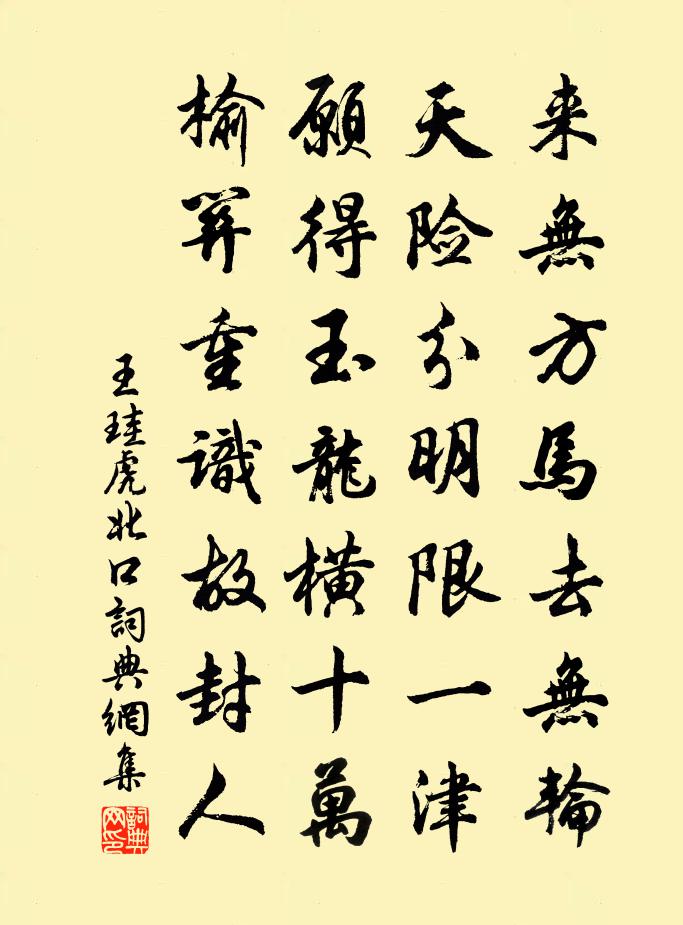 来無方馬去無輪
天险分明限一津
願得玉龍橫十萬
榆關重識故封人
王珪虎北口詞典網集
詞典网印